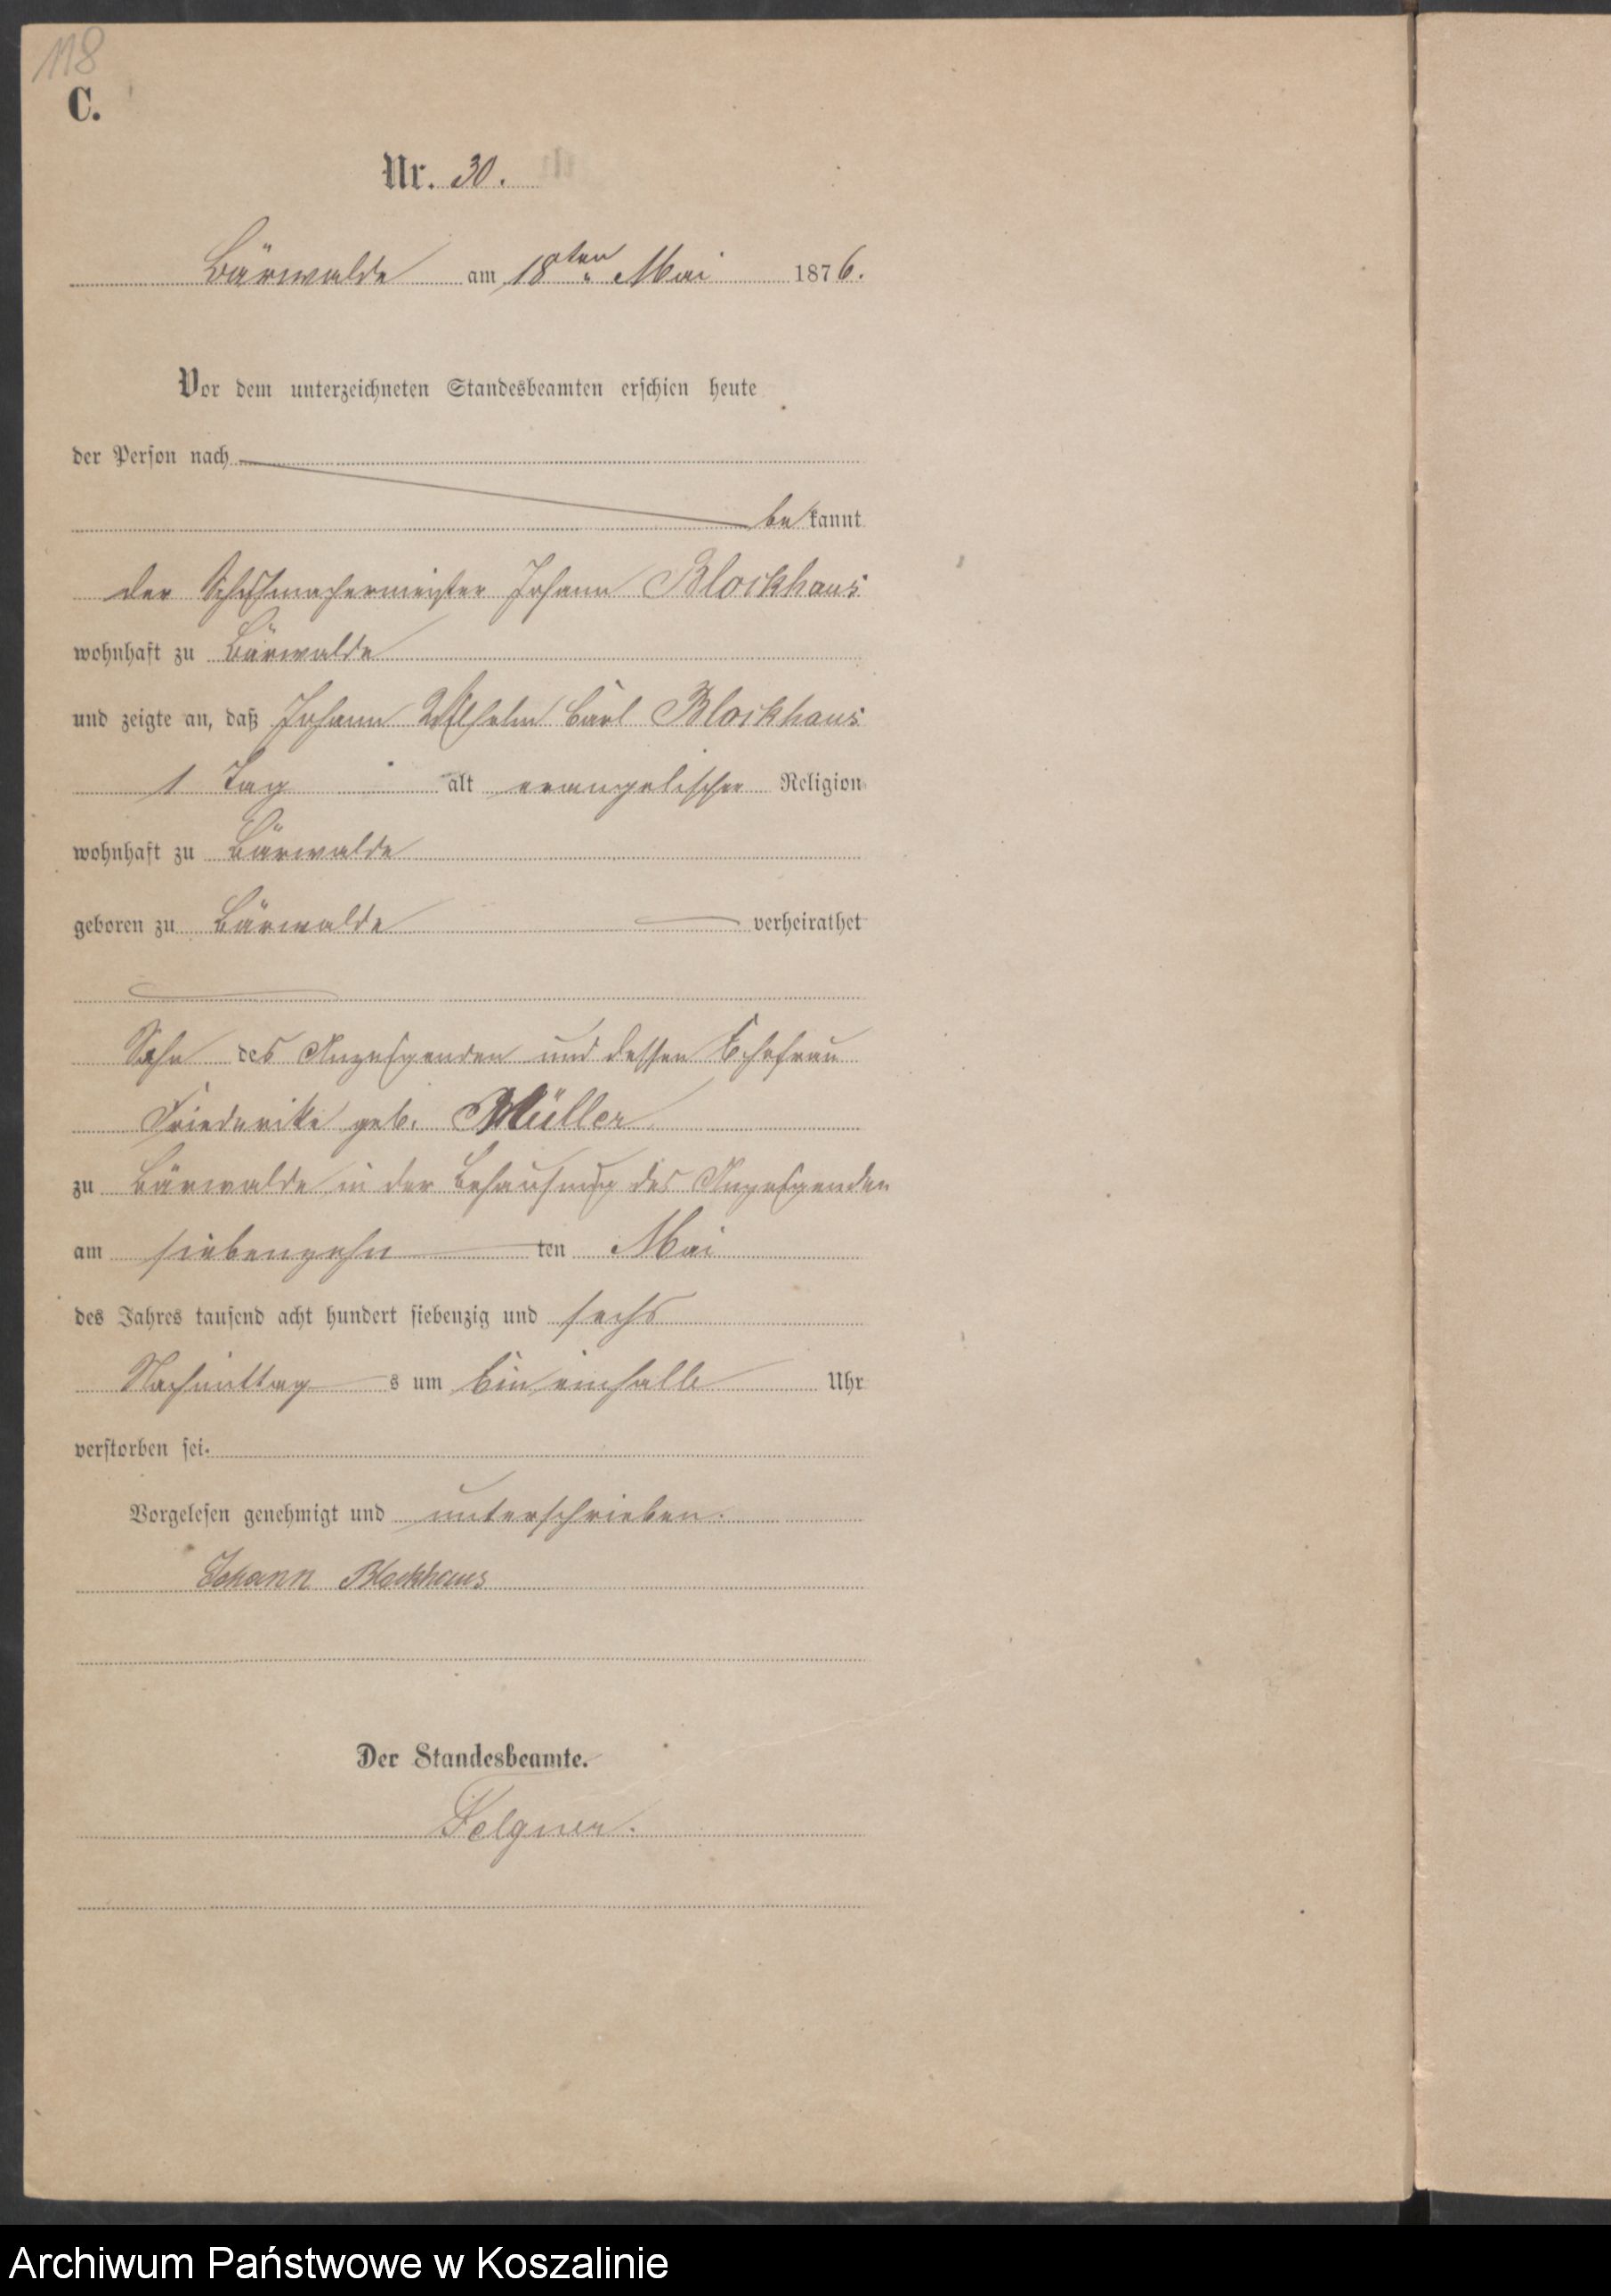 118
C.
Nr. 30.
Bärwalde am 18ten Mai 1876.
Vor dem unterzeichneten Standesbeamten erschien heute
der Person nach
bekannt
der Schuhmachermeister Johann Blockhaus
wohnhaft zu Bärwalde
und zeigte an, daß Johann Wilhelm Carl Blockhaus
1 Tag alt evangelischer Religion
wohnhaft zu Bärwalde
geboren zu Bärwalde verheirathet
Sohn des Anzeigenden und dessen Ehefrau
Friederike geb. Müller
zu Bärwalde in der Behausung des Anzeigenden
am siebenzehn ten Mai
des Jahres tausend acht hundert siebenzig und sechs
Nachmittag s um Ein einhalb Uhr
verstorben sei.
Vorgelesen genehmigt und unterschrieben.
Johann Blockhaus
Der Standesbeamte.
Felgner.
Archiwum Państwowe w Koszalinie